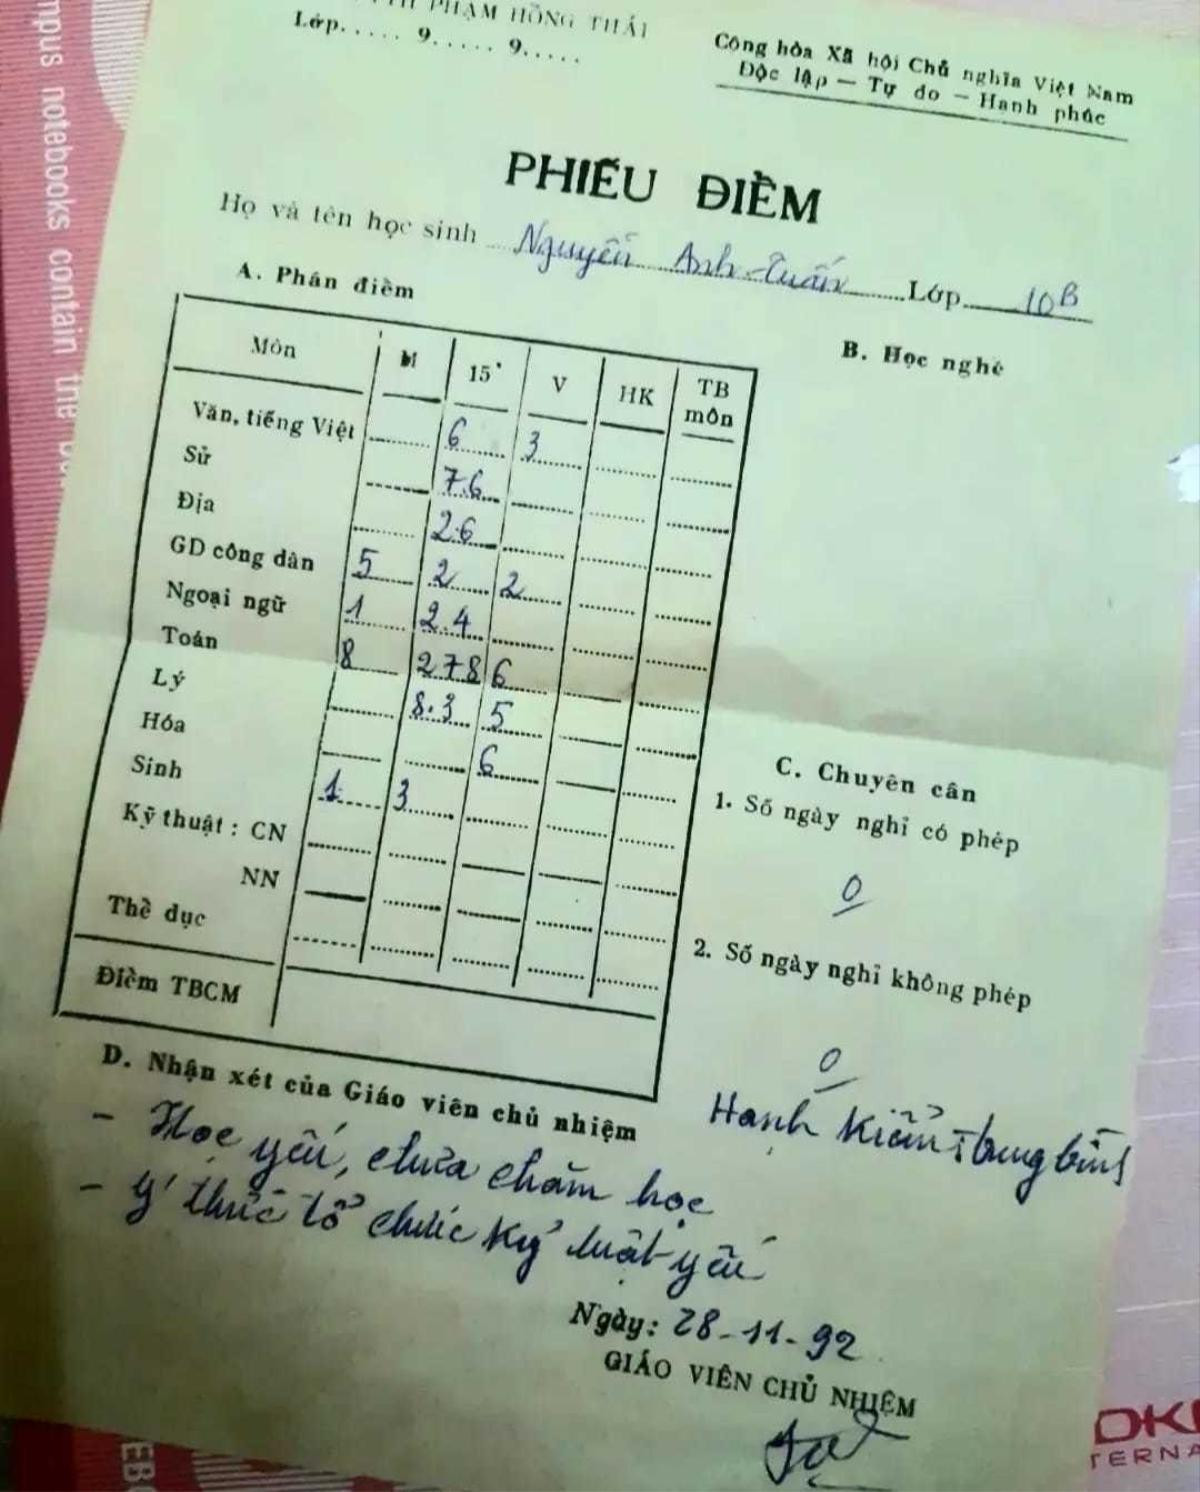 PHẠM HỒNG THÁI
Lớp..... 9..... 9.....
Cộng hòa Xã hội Chủ nghĩa Việt Nam
Độc lập — Tự do — Hạnh phúc
PHIẾU ĐIỂM
Họ và tên học sinh Nguyễn Anh Tuấn Lớp 10B
A. Phần điểm
B. Học nghề
Môn M 15' V HK TB môn
Văn, tiếng Việt 6 3
Sử 7.6
Địa 2.6
GD công dân 5 2 2
Ngoại ngữ 1 2.4
Toán 8 278 6
Lý 8.3 5
Hóa 6
Sinh 1 3
Kỹ thuật : CN
NN
Thể dục
Điểm TBCM
C. Chuyên cần
1. Số ngày nghỉ có phép
0
2. Số ngày nghỉ không phép
0
Hạnh kiểm: trung bình
D. Nhận xét của Giáo viên chủ nhiệm
- Học yếu, chưa chăm học
- Ý thức tổ chức kỷ luật yếu
Ngày: 28-11-92
GIÁO VIÊN CHỦ NHIỆM
mpus notebooks contain the